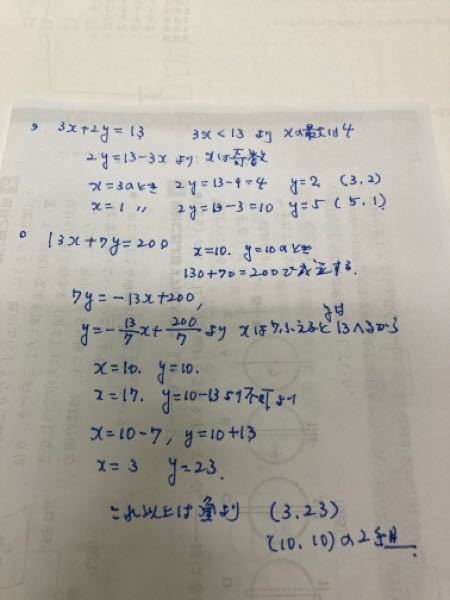 3x+2y=13 3x<13 より xの最大は4
2y=13-3x より xは奇数
x=3のとき 2y=13-9=4 y=2 (3,2)
x=1 〃 2y=13-3=10 y=5 (5,1)
13x+7y=200 x=10. y=10のとき
130+70=200で成立する.
7y=-13x+200,
yは
y=-13/7x+200/7より xは7ふえると13へるから
x=10. y=10.
x=17. y=10-13より不可より
x=10-7, y=10+13
x=3 y=23.
これ以上は より (3.23)
(10.10)の2組